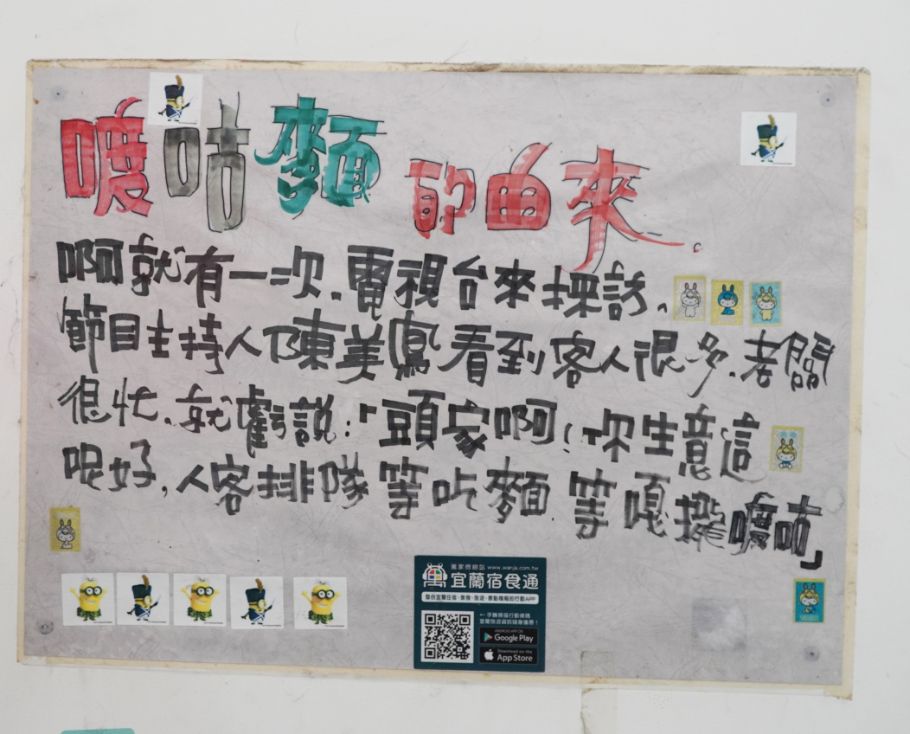 喥咕麵的由來。
啊就有一次,電視台來採訪。
節目主持人陳美鳳看到客人很多,老闆
很忙,就虧說:「頭家啊!你生意這
呢好,人客排隊等吃麵,等嘎攏喥咕」
www.wanja.com.tw
宜蘭宿食通
Google Play
App Store